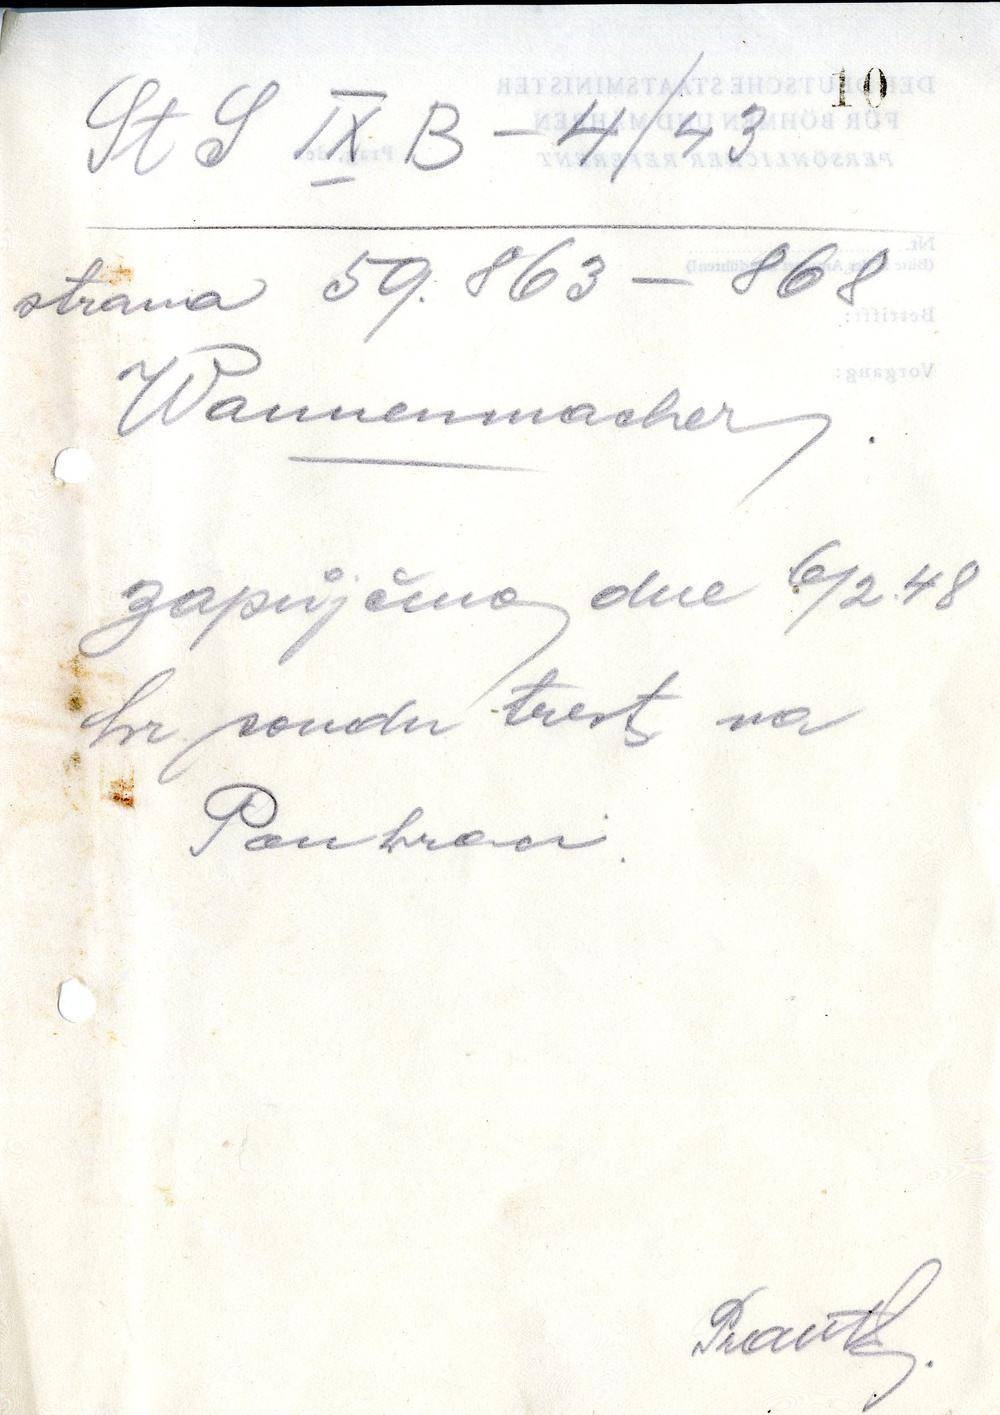 10
St S IX B - 4/43
strana 59.863 - 868
Wannenmacher.
zapůjčeno dne 6/2.48
kr. soudu trest. na
Pankraci.
DER DEUTSCHE STAATSMINISTER
FÜR BÖHMEN UND MÄHREN
PERSÖNLICHER REFERENT
Prag, den
Nr.
Betrifft:
Vorgang: